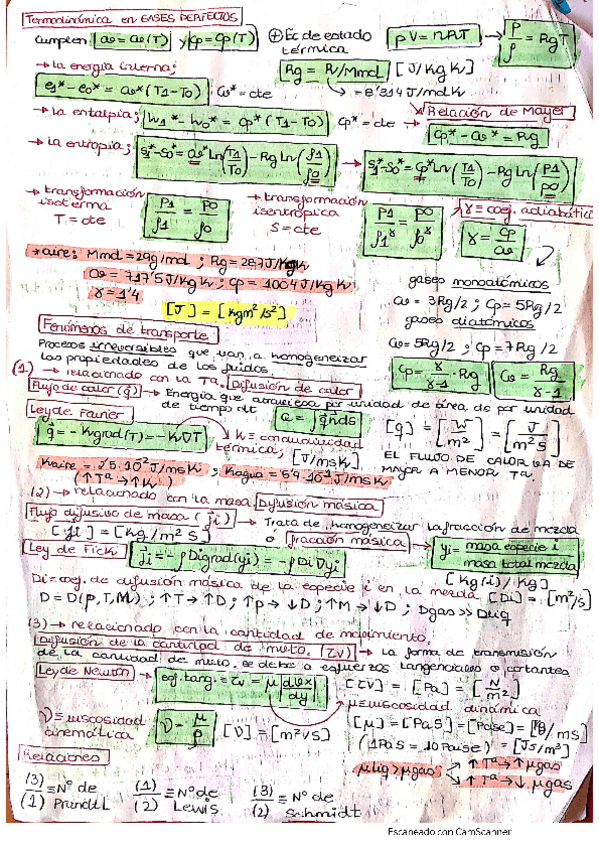 Termodinámica en GASES PERFECTOS
Cumplen cv=cv(T) y cp=cp(T) ⊕ Ec de estado térmica pV=nRT → p/ρ = RgT
Rg = R/Mmol [J/KgK]
→ = 8'314 J/molK
→ La energía interna; e1* - e0* = cv*(T1-T0) cv* = cte
→ La entalpia; h1* - h0* = cp*(T1-T0) cp* = cte → Relación de Mayer
cp* - cv* = Rg
→ La entropia; s1*-s0* = cv* Ln(T1/T0) - Rg Ln(ρ1/ρ0) → s1*-s0* = cp* Ln(T1/T0) - Rg Ln(p1/p0)
→ transformación isoterma T = cte p1/ρ1 = p0/ρ0
→ transformación isentrópica S = cte p1/ρ1^γ = p0/ρ0^γ
γ = coef. adiabático
γ = cp/cv
* aire: Mmol = 29g/mol ; Rg = 287 J/KgK
cv = 717'5 J/KgK ; cp = 1004 J/KgK
γ = 1'4
[J] = [Kgm²/s²]
gases monoatómicos
cv = 3Rg/2 ; cp = 5Rg/2
gases diatómicos
cv = 5Rg/2 ; cp = 7Rg/2
cp = γ/γ-1 · Rg cv = Rg/γ-1
Fenómenos de transporte
Procesos irreversibles que van a homogeneizar
las propiedades de los fluidos.
(1) → relacionado con la Ta. Difusión de calor
Flujo de calor (q̄) → Energía que atraviesa por unidad de área ds por unidad
de tiempo dt
Ley de Fourier
q̄ = -K grad(T) = -K∇T
K = conductividad térmica, [J/msK]
[q̄] = [W/m²] = [J/m²s]
EL FLUJO DE CALOR VA DE
MAYOR A MENOR Ta.
(↑Ta → ↑K)
(2) → relacionado con la masa Difusión másica
Flujo difusivo de masa (j̄i) → Trata de homogeneizar la fracción de mezcla
[j̄i] = [Kg/m²s] o fracción másica → yi = masa especie i / masa total mezcla
[Kg(i)/Kg]
Ley de Fick j̄i = -ρDi grad(yi) = -ρDi∇yi
Di = coef. de difusión másica de la especie i en la mezcla [Di] = [m²/s]
D = D(p,T,M) ; ↑T → ↑D ; ↑p → ↓D ; ↑M → ↓D ; Dgas >> Dliq
(3) → relacionado con la cantidad de movimiento.
Difusión de la cantidad de mvto. (τv) → La forma de transmisión
de la cantidad de mvto. se debe a esfuerzos tangenciales o cortantes
Ley de Newton → esf. tang. = τv = μ|dvx/dy|
[τv] = [Pa] = [N/m²]
μ = viscosidad dinámica
[μ] = [PaS] = [Poise] = [Kg/ms]
(1PaS = 10Poise) = [Js/m³]
ν = viscosidad cinemática ν = μ/ρ [ν] = [m²/s]
μliq > μgas ↑Ta → ↑μgas
Relaciones
(3)/(1) ≡ Nº de Prandtl
(1)/(2) ≡ Nº de Lewis
(3)/(2) ≡ Nº de Schmidt
Escaneado con CamScanner